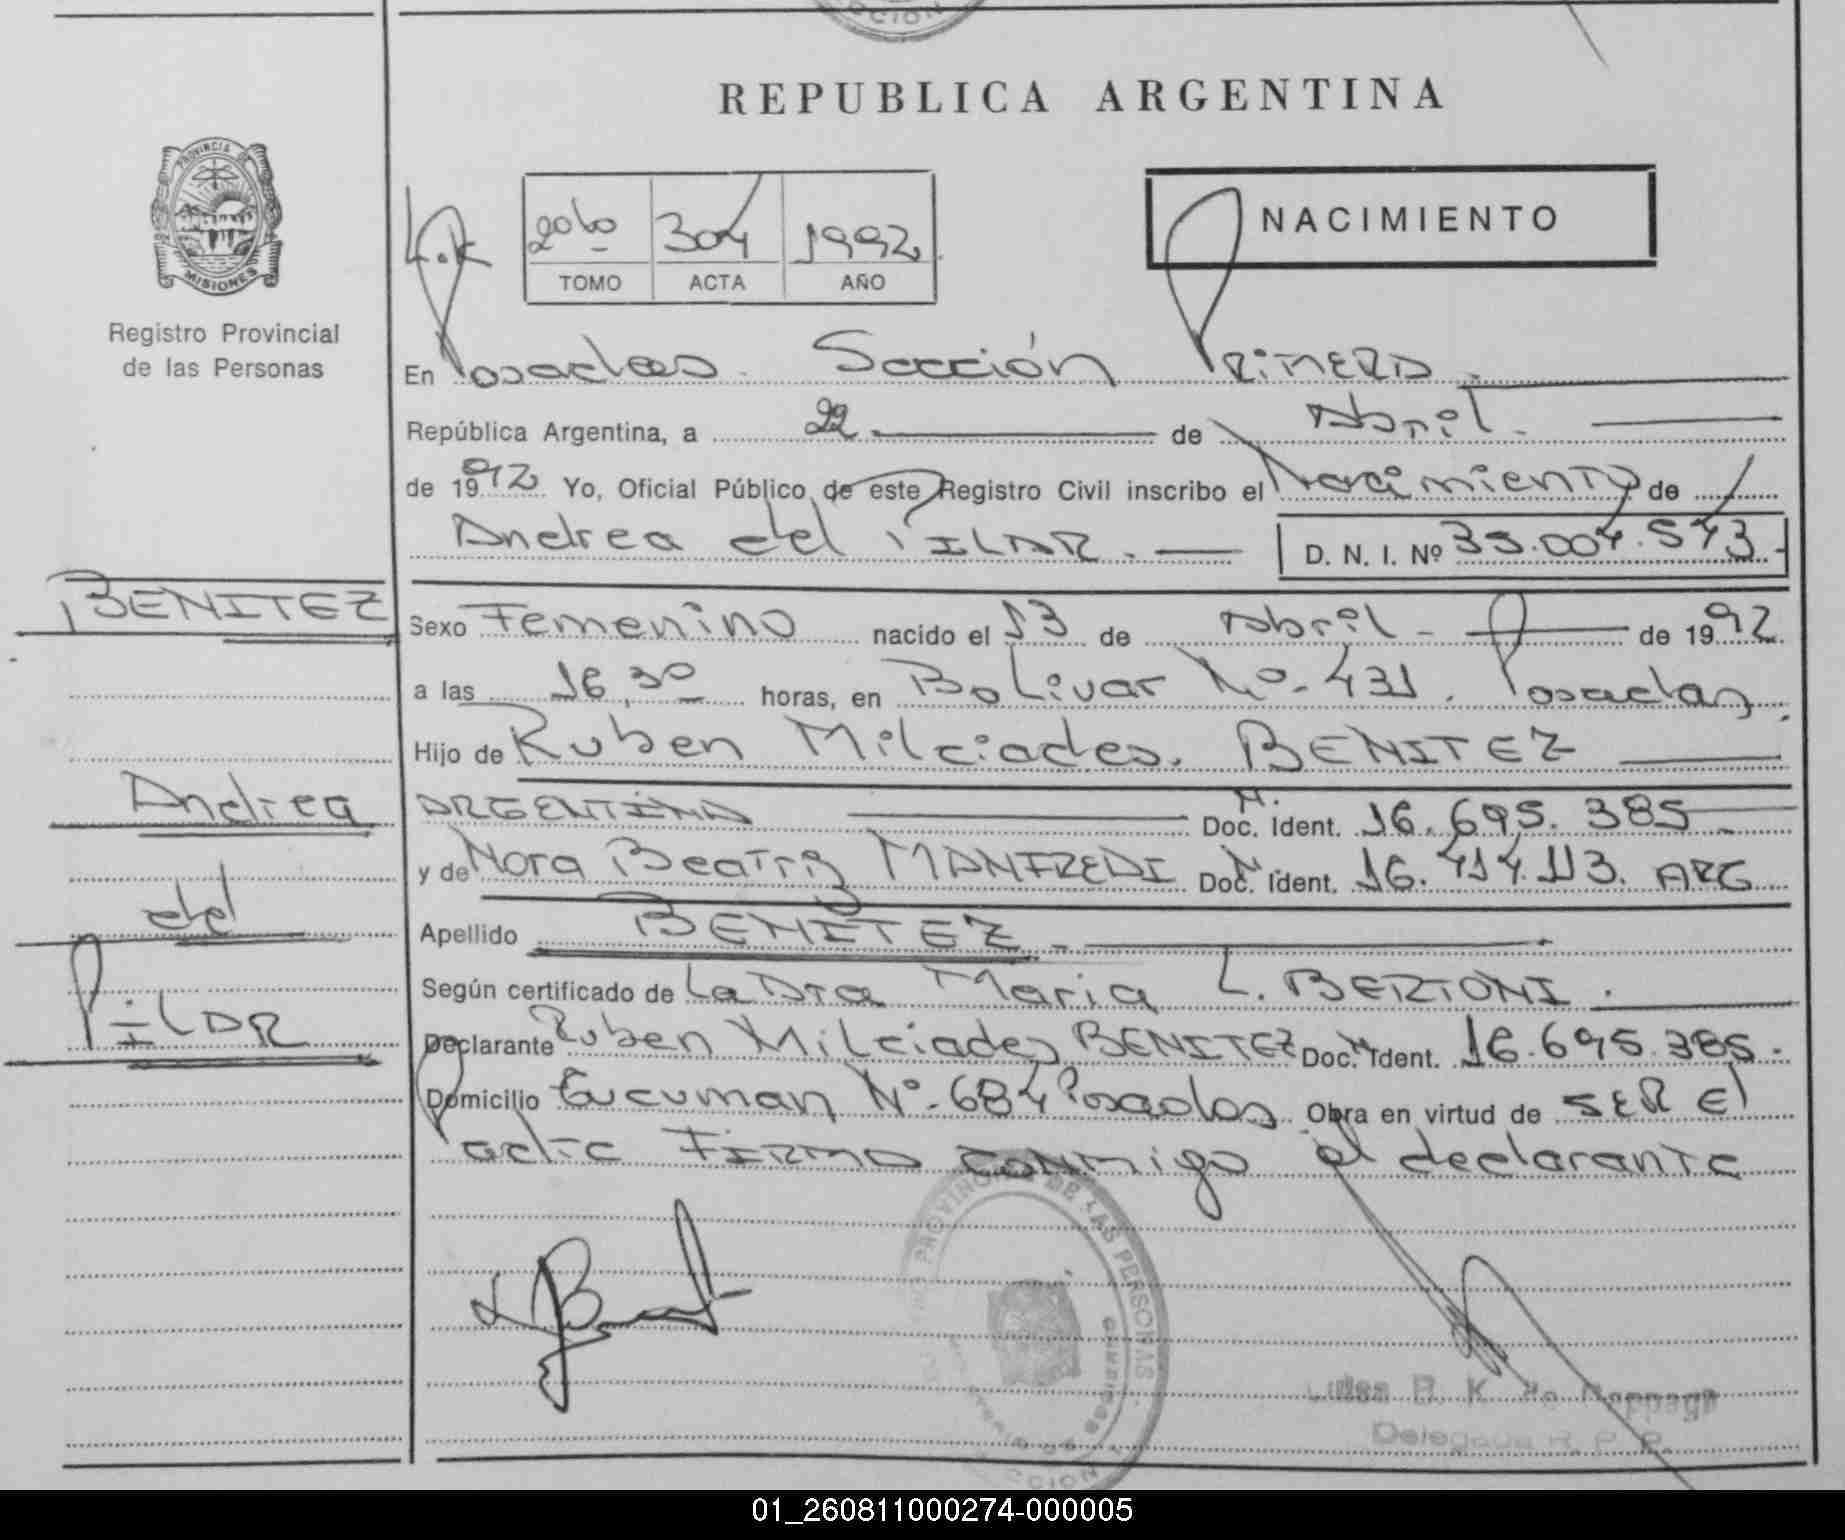 REPUBLICA ARGENTINA
PROVINCIA DE
MISIONES
Registro Provincial
de las Personas
304 1992
TOMO ACTA AÑO
NACIMIENTO
En Posadas. Sección PRIMERA.
República Argentina, a 22 de Abril.
de 1992 Yo, Oficial Público de este Registro Civil inscribo el Nacimiento de
Andrea del PILAR. D. N. I. Nº
BENITEZ
Sexo Femenino nacido el 13 de Abril - de 1992.
a las 16,30 horas, en Bolivar Nº. 431. Posadas.
Hijo de Ruben Milciades. BENITEZ
Andrea
ARGENTINA Doc. N. Ident. 16.695.385
y de Nora Beatriz MANFREDI Doc. N. Ident. 16.414.113. ARG
del
Apellido BENITEZ.
Según certificado de La Dra Maria L. BERTONI.
PILAR
Declarante Ruben Milciades BENITEZ Doc. N. Ident. 16.695.385.
Domicilio Tucuman Nº. 684 Posadas. Obra en virtud de SER El
FIRMA CONMigo el declarante
PROVINCIAL DE LAS PERSONAS
01_260811000274-000005